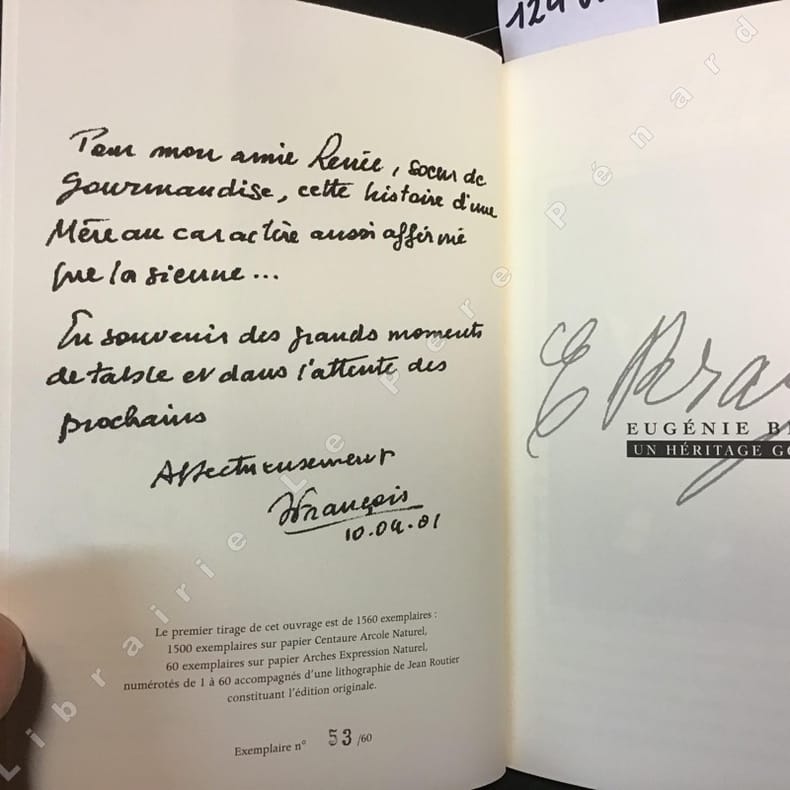 124
Pour mon amie Renée, soeur de
gourmandise, cette histoire d'une
Mère au caractère aussi affirmé
que la sienne...
En souvenir des grands moments
de table et dans l'attente des
prochains
Affectueusement
François
10.04.01
Le premier tirage de cet ouvrage est de 1560 exemplaires :
1500 exemplaires sur papier Centaure Arcole Naturel,
60 exemplaires sur papier Arches Expression Naturel,
numérotés de 1 à 60 accompagnés d'une lithographie de Jean Routier
constituant l'édition originale.
Exemplaire n° 53 /60
E Bra
EUGÉNIE B
UN HÉRITAGE GO
Librairie Le Père Pénard